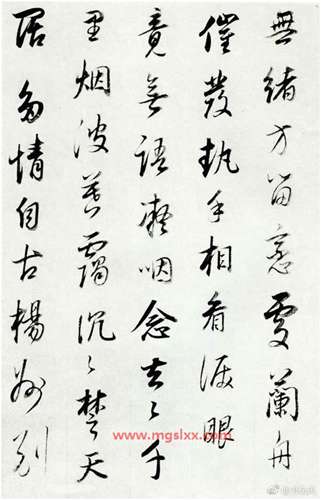 無緒方留戀處蘭舟
催發執手相看淚眼
竟無語凝咽念去〻千
里烟波暮靄沉〻楚天
闊多情自古傷離别
www.mgslxx.com